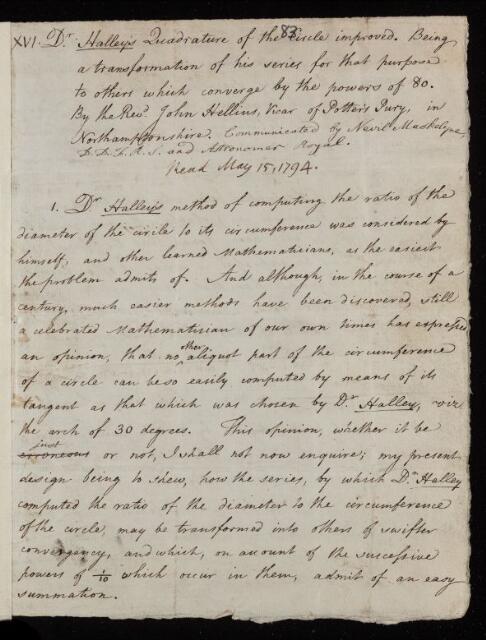 83.
XVI. Dr. Halley's Quadrature of the Circle improved. Being
a transformation of his series for that purpose
to others which converge by the powers of 80.
By the Revd. John Hellins, Vicar of Potter's Pury, in
Northamptonshire. Communicated by Nevil Maskelyne,
D. D. F. R. S. and Astronomer Royal.
Read May 15, 1794.
1. Dr Halley's method of computing the ratio of the
diameter of the circle to its circumference was considered by
himself, and other learned Mathematicians, as the easiest
the problem admits of. And although, in the course of a
century, much easier methods have been discovered, still
a celebrated Mathematician of our own times has expressed
an opinion, that no other aliquot part of the circumference
of a circle can be so easily computed by means of its
tangent as that which was chosen by Dr Halley, viz
the arch of 30 degrees. This opinion, whether it be
just
erroneous or not, I shall not now enquire; my present
design being to shew, how the series, by which Dr. Halley
computed the ratio of the diameter to the circumference
of the circle, may be transformed into others of swifter
convergency, and which, on account of the successive
powers of 1/10 which occur in them, admit of an easy
summation.